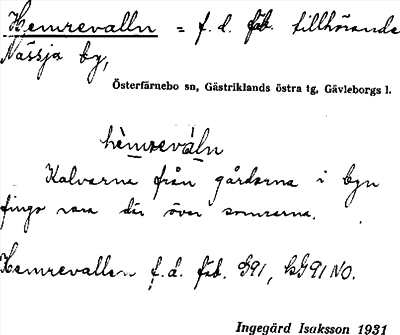 Hemrevalln = f. d. fäb. tillhörande
Nässja by,
Österfärnebo sn, Gästriklands östra tg, Gävleborgs l.
hèmrevàln
Kalvarna från gårdarna i byn
fingo vara där över somrarna.
Hemrevallen f. d. fäb. G91, bG91 NO.
Ingegärd Isaksson 1931